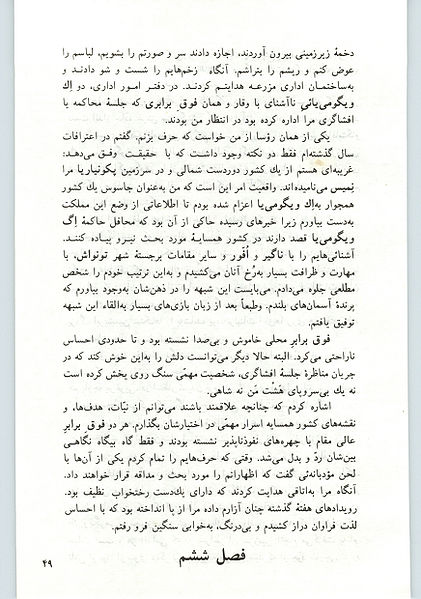 دخمهٔ زیرزمینی بیرون آوردند، اجازه دادند سر و صورتم را بشویم، لباسم را
عوض کنم و ریشم را بتراشم. آنگاه زخم‌هایم را شست و شو دادند و
به‌ساختمان اداری مزرعه هدایتم کردند. در دفتر امور اداری، دو اِك
ویگومی‌یائی ناآشنای با وقار و همان فوق برابری که جلسهٔ محاکمه یا
افشاگری مرا اداره کرده بود در انتظار من بودند.
یکی از همان رؤسا از من خواست که حرف بزنم. گفتم در اعترافات
سال گذشته‌ام فقط دو نکته وجود داشت که با حقیقت وفق می‌دهد:
غریبه‌ای هستم از یك کشور دوردست شمالی و در سرزمین پکونیاریا مرا
نمیس می‌نامیده‌اند. واقعیت امر این است که من به‌عنوان جاسوس یك کشور
همجوار به‌اِك ویگومی‌یا اعزام شده بودم تا اطلاعاتی از وضع این مملکت
به‌دست بیاورم زیرا خبرهای رسیده حاکی از آن بود که محافل حاکمهٔ اِگ
ویگومی‌یا قصد دارند در کشور همسایهٔ مورد بحث نیرو پیاده کنند.
آشنائی‌هایم را با ناگیر و اُقور و سایر مقامات برجستهٔ شهر تونواش، با
مهارت و ظرافت بسیار به‌رُخ آنان می‌کشیدم و به‌این ترتیب خودم را شخص
مطلعی جلوه می‌دادم. می‌بایست این شبهه را در ذهن‌شان به‌وجود بیاورم که
پرندهٔ آسمان‌های بلندم. وطبعاً بعد از زبان بازی‌های بسیار به‌القاء این شبهه
توفیق یافتم.
فوق برابرِ محلی خاموش و بی‌صدا نشسته بود و تا حدودی احساس
ناراحتی می‌کرد. البته حالا دیگر می‌توانست دلش را به‌این خوش کند که در
جریان مناظرهٔ جلسهٔ افشاگری، شخصیت مهمّی سنگ روی یخش کرده است
نه یك بی‌سروپای هَشْت مَن نه شاهی.
اشاره کردم که چنانچه علاقمند باشند می‌توانم از نیّات، هدف‌ها، و
نقشه‌های کشور همسایه اسرار مهمّی در اختیارشان بگذارم. هر دو فوق برابرِ
عالی مقام با چهره‌های نفوذناپذیر نشسته بودند و فقط گاه بیگاه نگاهی
بین‌شان ردّ و بدل می‌شد. وقتی که حرف‌هایم را تمام کردم یکی از آن‌ها با
لحن مؤدبانه‌ئی گفت که اظهاراتم را مورد بحث و مداقه قرار خواهند داد.
آنگاه مرا به‌اتاقی هدایت کردند که دارای یك‌دست رختخواب نظیف بود.
رویدادهای هفتهٔ گذشته چنان آزارم داده مرا از پا انداخته بود که با احساس
لذت فراوان دراز کشیدم و بی‌درنگ، به‌خوابی سنگین فرو رفتم.
فصل ششم
۴۹